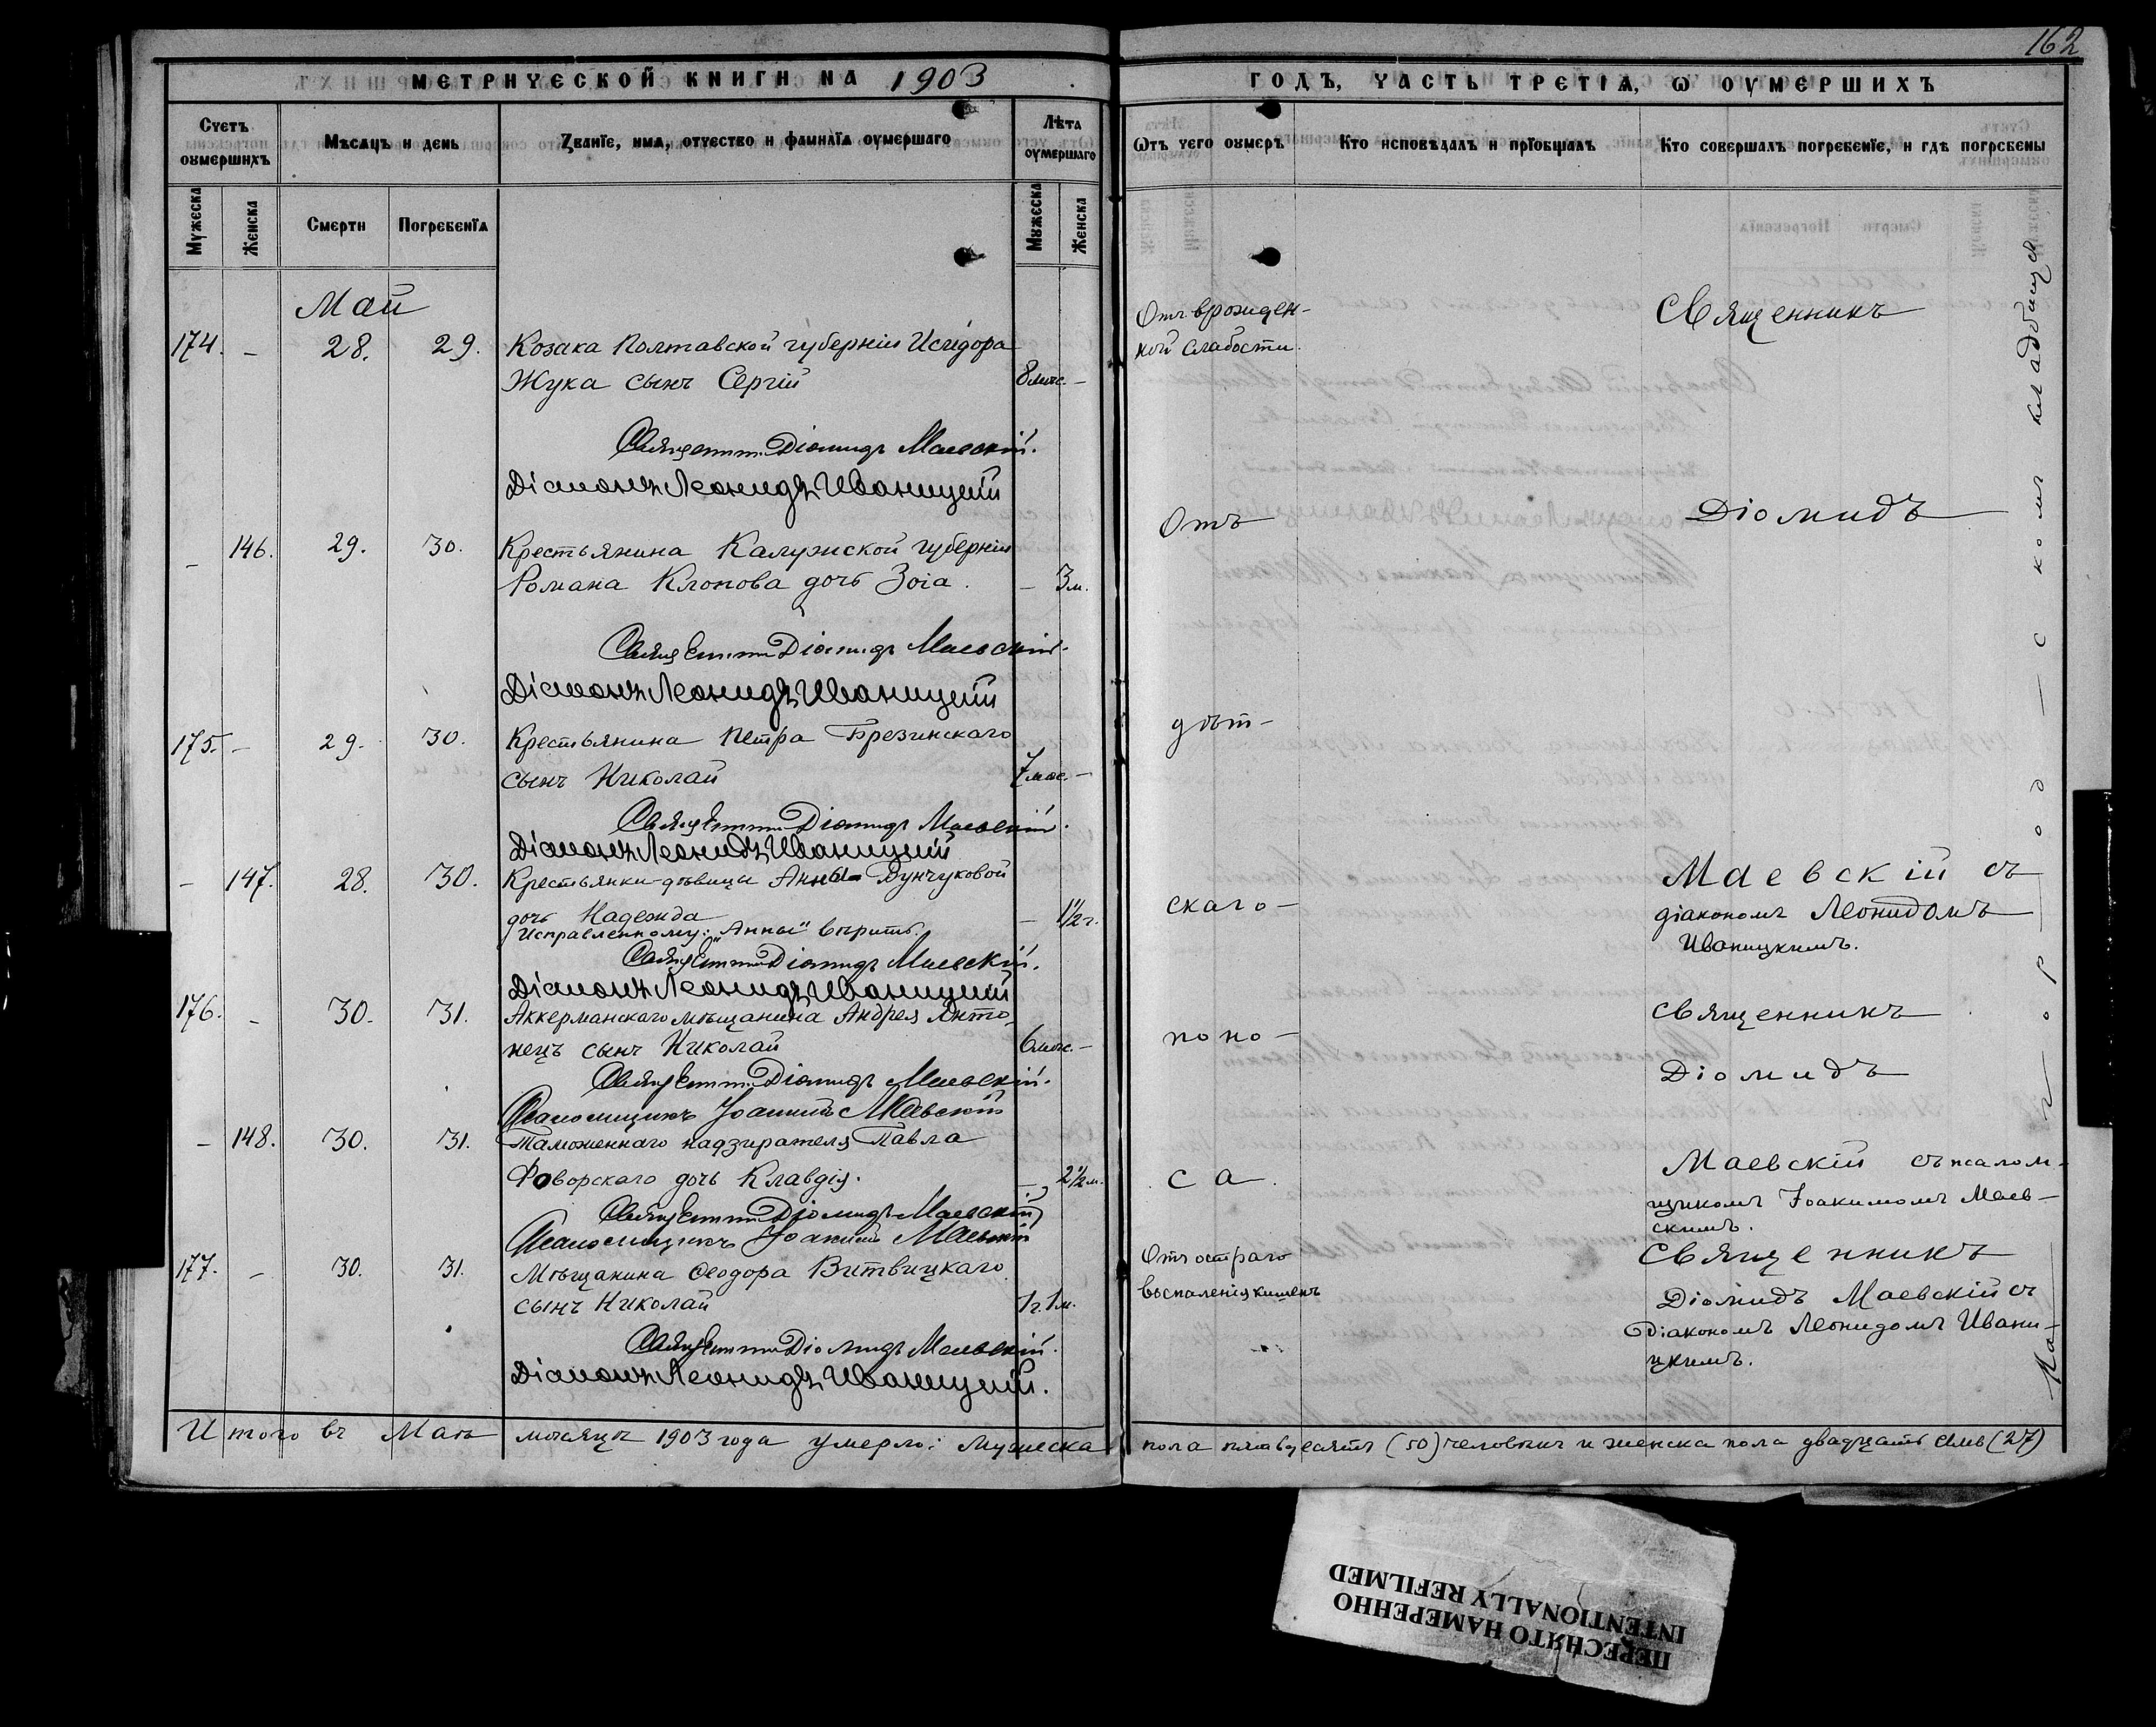 162
МЕТРИЧЕСКОЙ КНИГИ НА 1903
ГОДЪ, ЧАСТЬ ТРЕТІѦ, Ѡ ОУМЕРШИХЪ
Счетъ оумершихъ
Мѣсѧцъ и день
Званїе, имѧ, отчество и фамилїѧ оумершаго
Лѣта оумершаго
Ѿтъ чего оумеръ
Кто исповѣдалъ и прїобщалъ
Кто совершалъ погребенїе, и гдѣ погребены
Мужеска
Женска
Смерти
Погребенїѧ
Мужеска
Женска
Май
174. – 28. 29. Козака Полтавской губерніи Исидора
Жука сынъ Сергій 8 мѣс. –
Священник Діомидъ Маевскій.
Діаконъ Леонидъ Иваницкій
– 146. 29. 30. Крестьянина Калужской губерніи
Романа Клопова дочь Зоіа. – 3 м.
Священник Діомидъ Маевскій.
Діаконъ Леонидъ Иваницкій
175. – 29. 30. Крестьянина Петра Брезинскаго
сынъ Николай 7 мѣс. –
Священник Діомидъ Маевскій.
Діаконъ Леонидъ Иваницкій
– 147. 28. 30. Крестьянки-дѣвицы Анны Дунчуковой
дочь Надежда – 1½ г.
Исправленному: "Анны" вѣрить.
Священник Діомидъ Маевскій.
Діаконъ Леонидъ Иваницкій
176. – 30. 31. Аккерманскаго мѣщанина Андрея Анто-
нецъ сынъ Николай 6 мѣс. –
Священник Діомидъ Маевскій.
Псаломщикъ Іоакимъ Маевскій
– 148. 30. 31. Таможеннаго надзирателя Павла
Фаворскаго дочь Клавдія. – 2½ м.
Священник Діомидъ Маевскій
Псаломщикъ Іоакимъ Маевскій
177. – 30. 31. Мѣщанина Ѳеодора Витвицкаго
сынъ Николай 1 г. 1 м.
Священник Діомидъ Маевскій.
Діаконъ Леонидъ Иваницкій.
Отъ врожден-
ной слабости.
Отъ
дѣт-
скаго-
поно-
са.
Отъ остраго
воспаленія кишекъ
Священникъ
Діомидъ
Маевскій съ
діакономъ Леонидомъ
Иваницкимъ.
Священникъ
Діомидъ
Маевскій съ псалом-
щикомъ Іоакимомъ Маев-
скимъ.
Священникъ
Діомидъ Маевскій съ
діакономъ Леонидомъ Ивани-
цкимъ.
На городскомъ кладбищѣ
Итого въ Маѣ мѣсяцѣ 1903 года умерло: мужеска пола пятьдесятъ (50) человѣкъ и женска пола двадцать семь (27)
ПЕРЕСНЯТО НАМЕРЕННО
INTENTIONALLY REFILMED